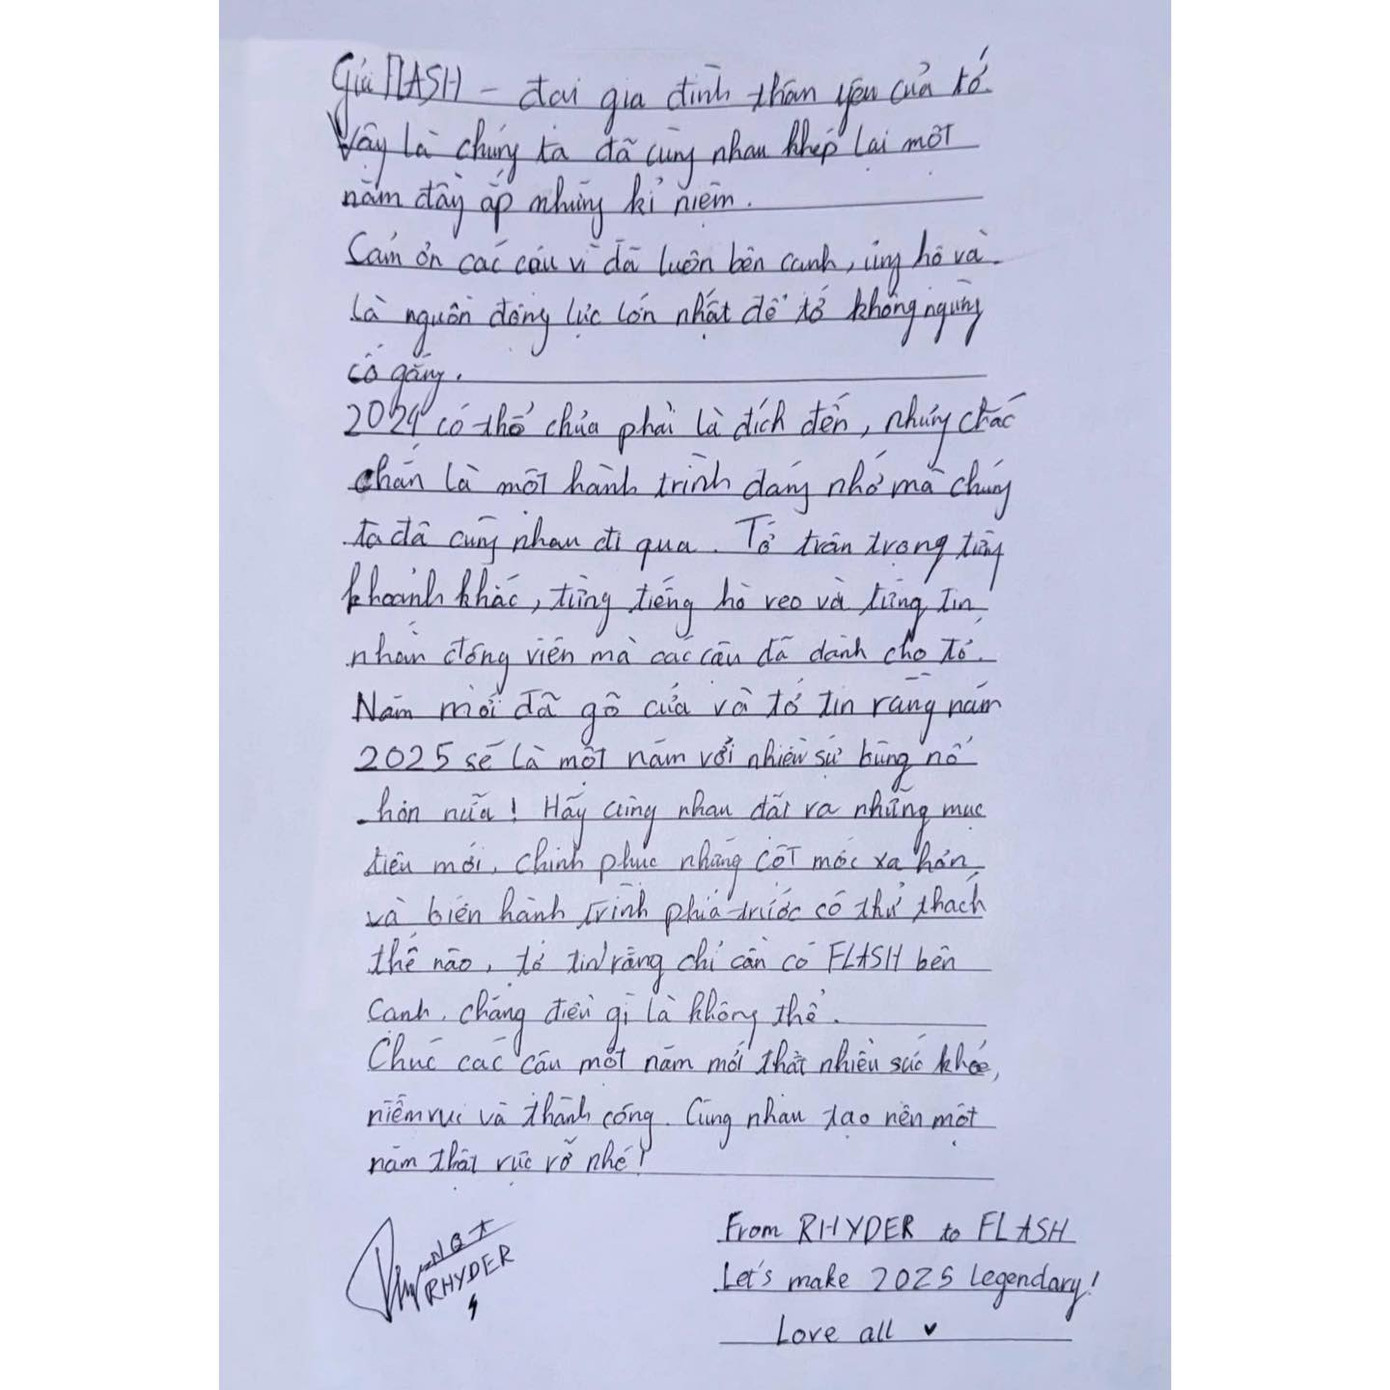 Gửi FLASH – đại gia đình thân yêu của tớ.
Vậy là chúng ta đã cùng nhau khép lại một
năm đầy ắp những kỉ niệm.
Cảm ơn các cậu vì đã luôn bên cạnh, ủng hộ và
là nguồn động lực lớn nhất để tớ không ngừng
cố gắng.
2024 có thể chưa phải là đích đến, nhưng chắc
chắn là một hành trình đáng nhớ mà chúng
ta đã cùng nhau đi qua. Tớ trân trọng từng
khoảnh khắc, từng tiếng hò reo và từng tin
nhắn động viên mà các cậu đã dành cho tớ.
Năm mới đã gõ cửa và tớ tin rằng năm
2025 sẽ là một năm với nhiều sự bùng nổ
hơn nữa! Hãy cùng nhau đặt ra những mục
tiêu mới, chinh phục những cột mốc xa hơn
và biến hành trình phía trước có thử thách
thế nào, tớ tin rằng chỉ cần có FLASH bên
cạnh, chẳng điều gì là không thể.
Chúc các cậu một năm mới thật nhiều sức khoẻ,
niềm vui và thành công. Cùng nhau tạo nên một
năm thật rực rỡ nhé!
From RHYDER to FLASH
Let's make 2025 legendary!
Love all ♥
RHYDER